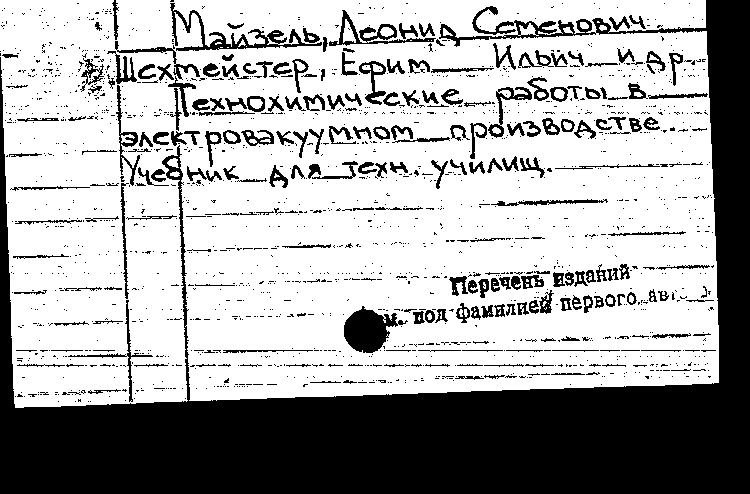 Майзель, Леонид Семенович.
Шехтмейстер, Ефим Ильич и др.
Технохимические работы в
электровакуумном производстве.
Учебник для техн. училищ.
Перечень изданий
под фамилией первого